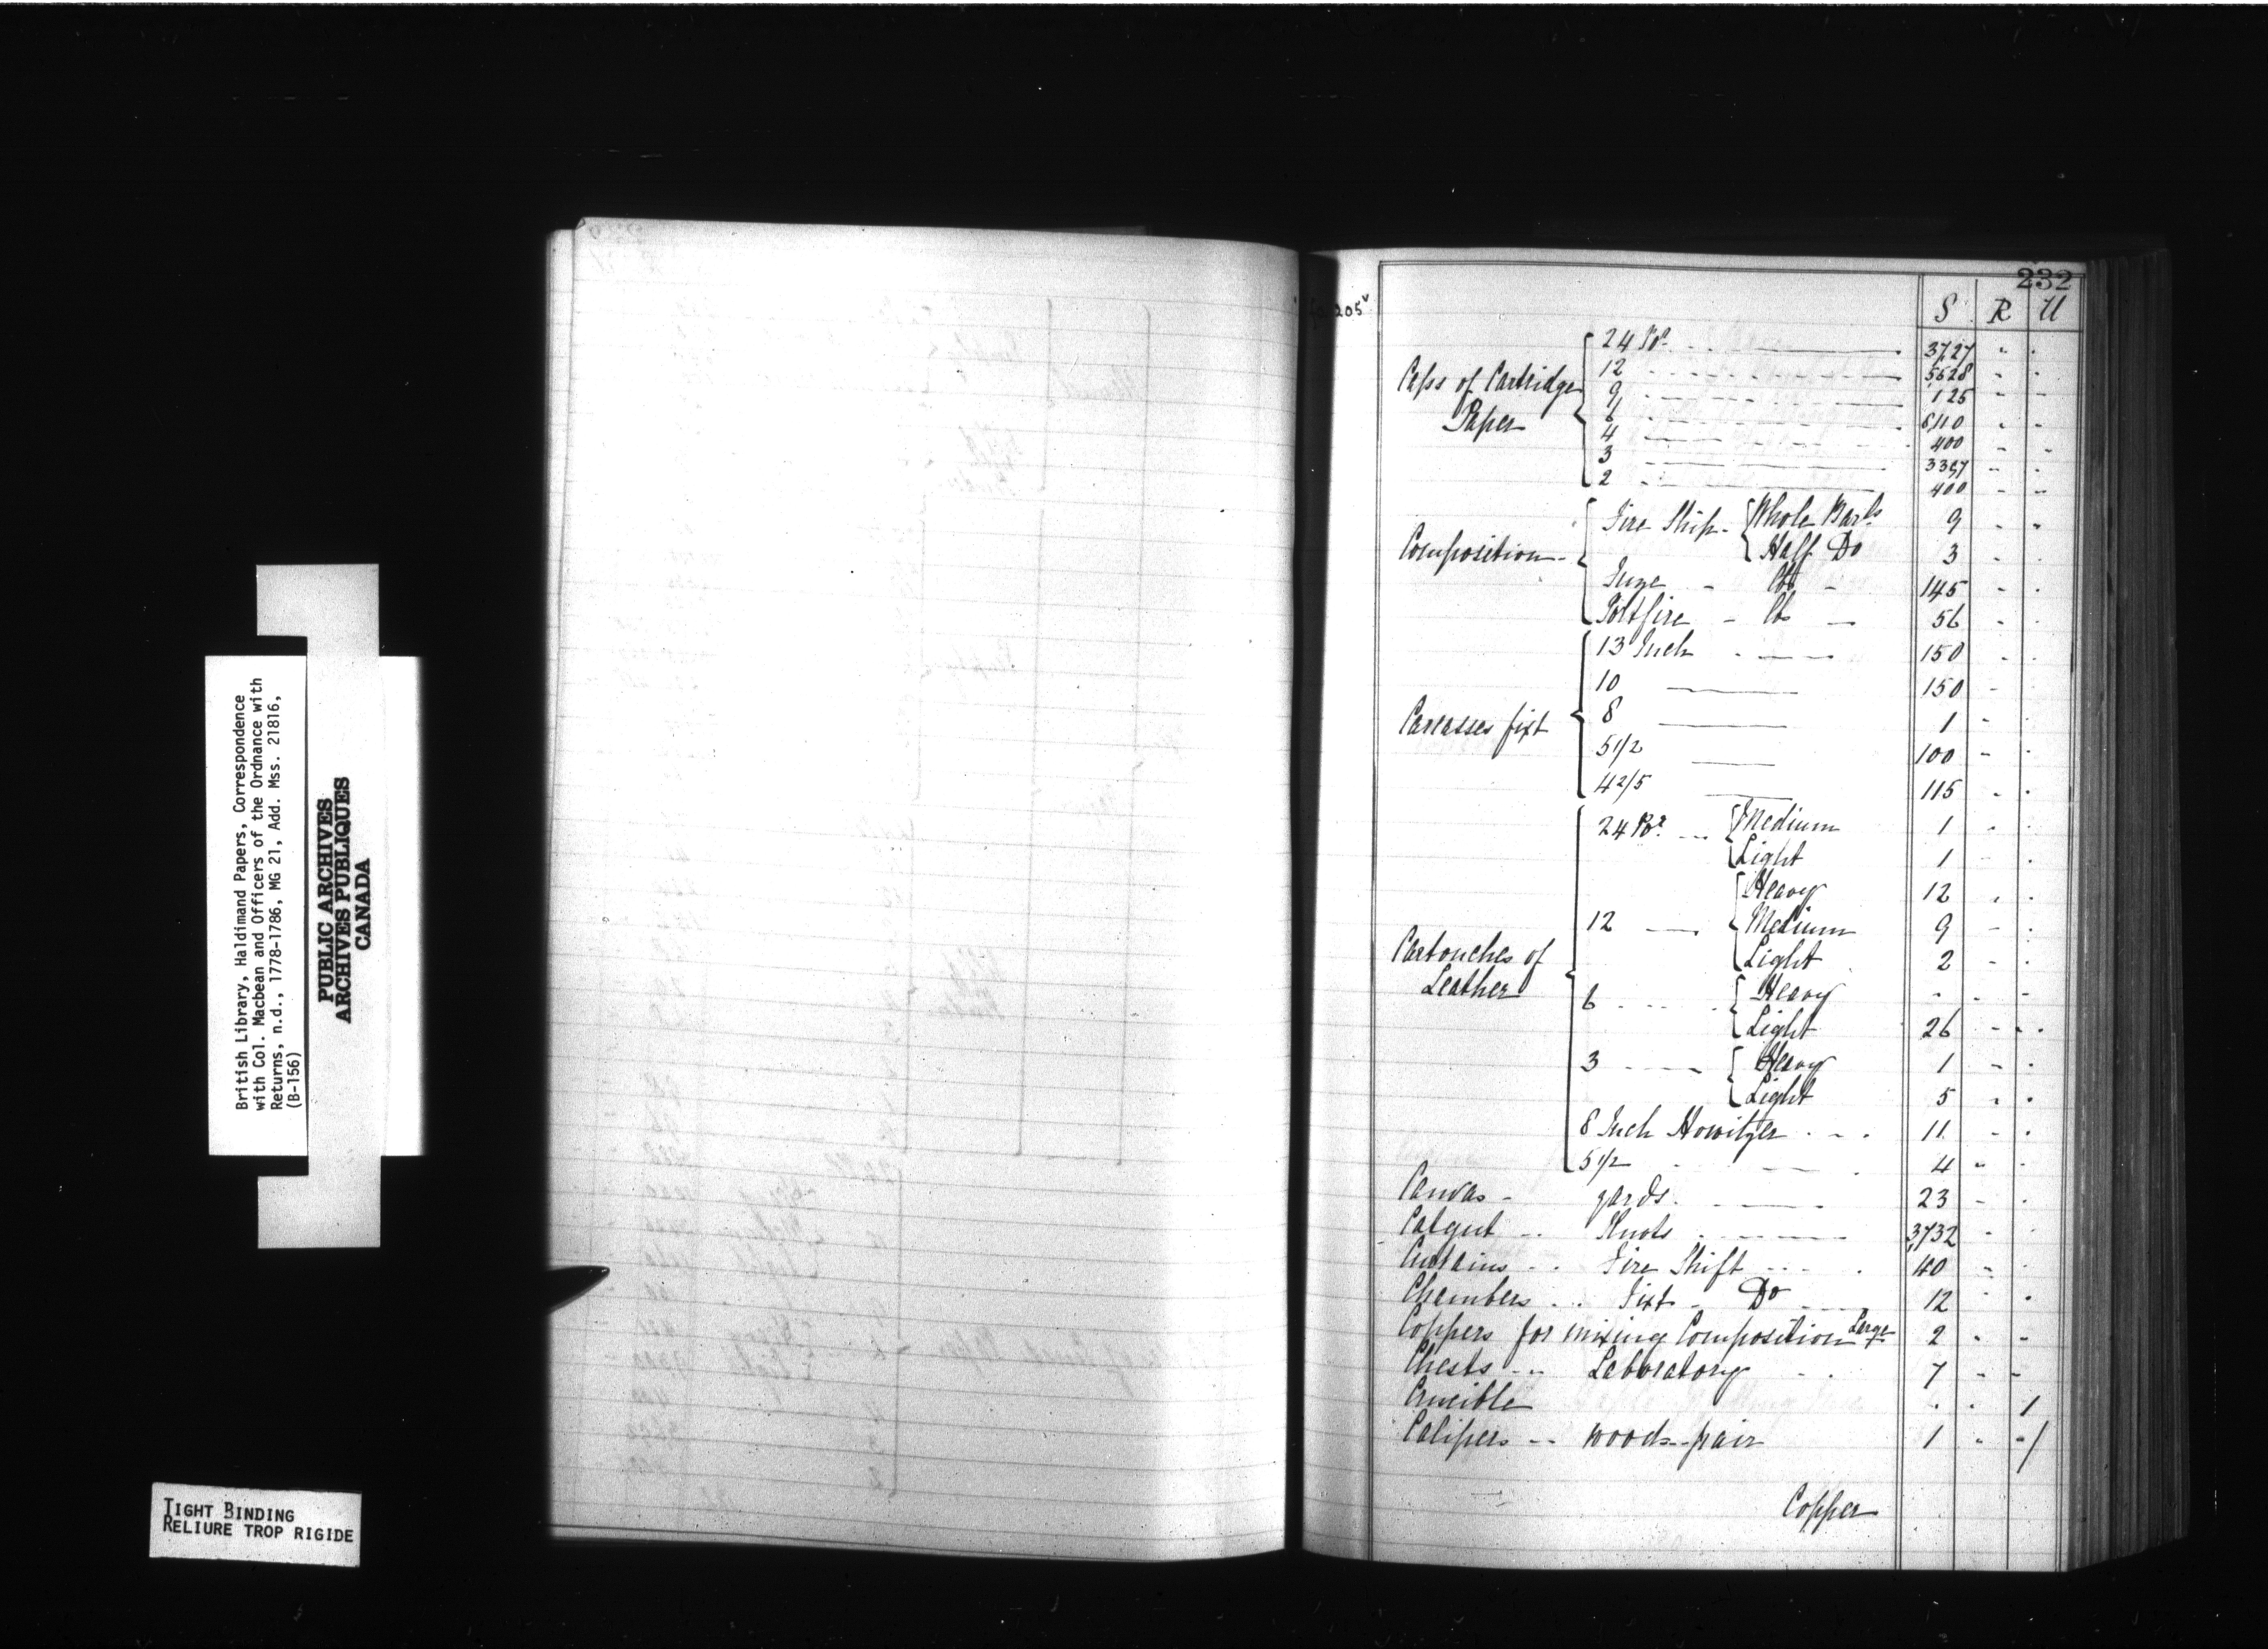 232
fo. 205v
S R U
Caps of Cartridge Paper
24 Pr. 3727 " "
12 5628 " "
9 125 " "
6 6110 " "
4 400 " "
3 3397 " "
2 400 " "
Composition
Fire Ship Whole Barls 9 " "
Half Do 3 " "
Fuze lbs 145 " "
Portfire lbs 56 " "
Carcasses fixt
13 Inch 150 " "
10 150 " "
8 1 " "
5 1/2 100 " "
4 2/5 115 " "
Cartouches of Leather
24 Pr. Medium 1 " "
Light 1 " "
12 Heavy 12 " "
Medium 9 " "
Light 2 " "
6 Heavy " " "
Light 26 " "
3 Heavy 1 " "
Light 5 " "
8 Inch Howitzer 11 " "
5 1/2 4 " "
Canvas yards 23 " "
Catgut Knots 3,732 " "
Curtains Fire Shift 40 " "
Chambers Fixt Do 12 " "
Coppers for mixing Composition Large 2 " "
Chests Laboratory 7 " "
Crucible " " 1
Calipers wood pair 1 " " /
Copper
British Library, Haldimand Papers, Correspondence
with Col. Macbean and Officers of the Ordnance with
Returns, n.d., 1778-1786, MG 21, Add. Mss. 21816,
(B-156)
PUBLIC ARCHIVES
ARCHIVES PUBLIQUES
CANADA
TIGHT BINDING
RELIURE TROP RIGIDE